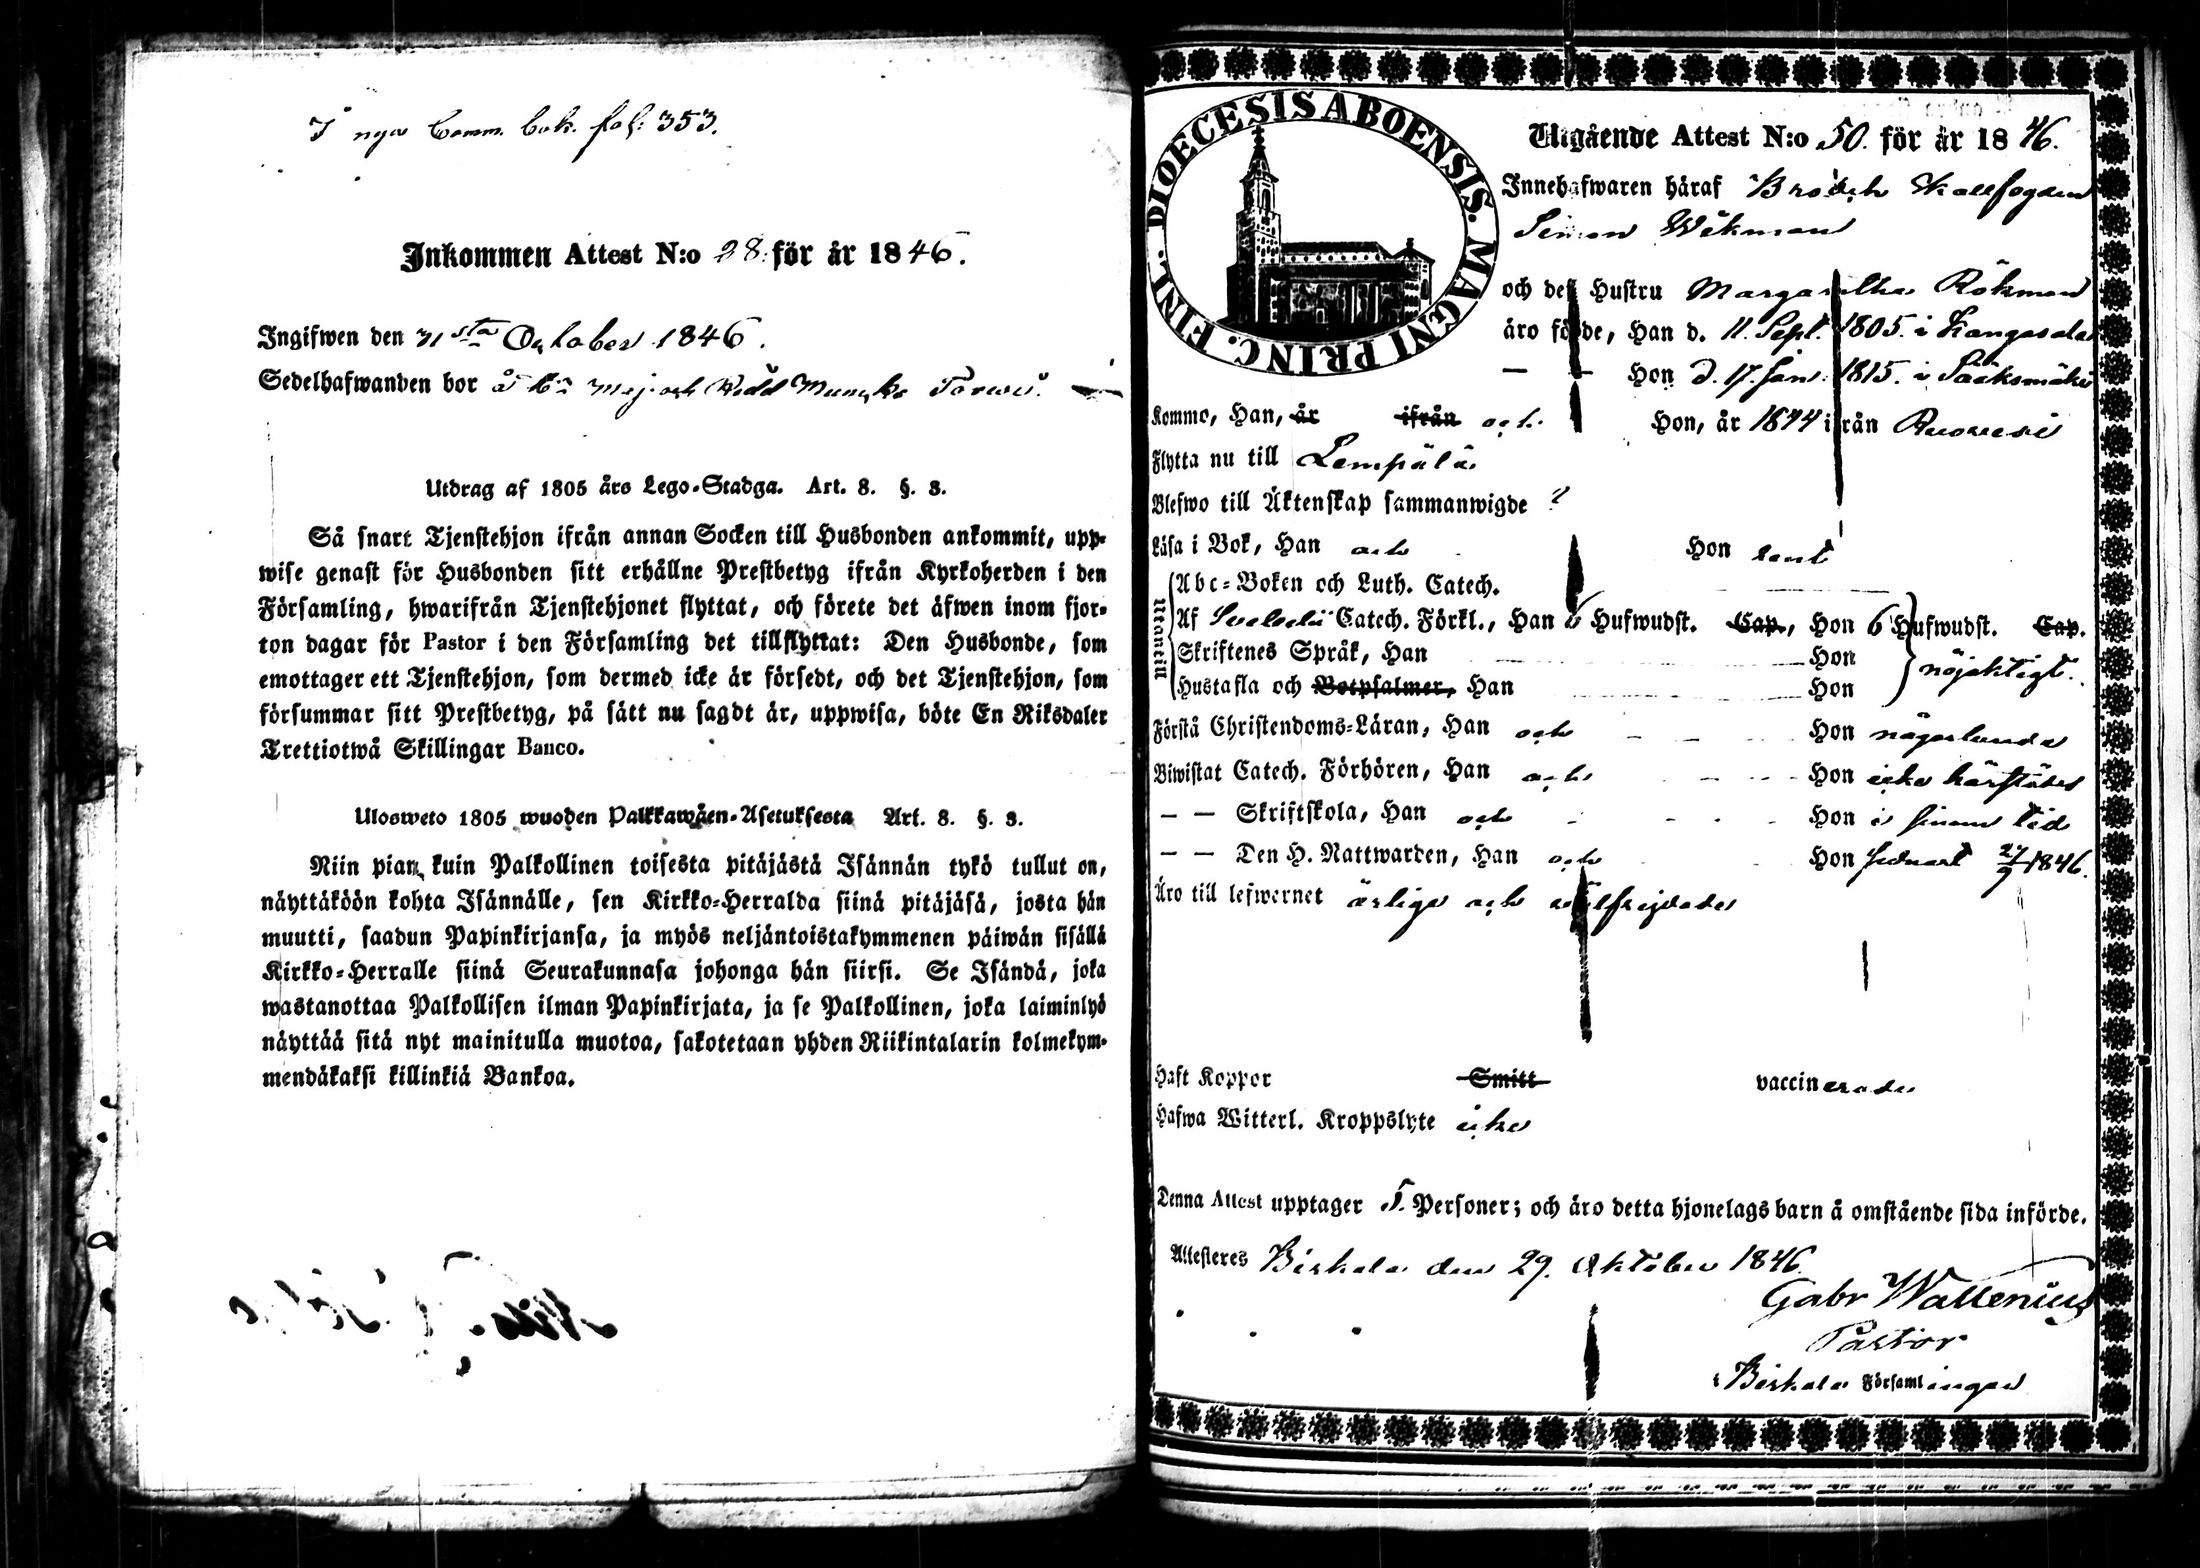 I nya Comm. bok. fol: 353.
Inkommen Attest N:o 28. för år 1846.
Ingifwen den 31sta October 1846.
Sedelhafwanden bor å
Utdrag af 1805 års Lego-Stadga. Art. 8. §. 3.
Så snart Tjenstehjon ifrån annan Socken till Husbonden ankommit, upp-
wise genast för Husbonden sitt erhållne Prestbetyg ifrån Kyrkoherden i den
Församling, hwarifrån Tjenstehjonet flyttat, och förete det äfwen inom fjor-
ton dagar för Pastor i den Församling det tillflyttat: Den Husbonde, som
emottager ett Tjenstehjon, som dermed icke är försedt, och det Tjenstehjon, som
försummar sitt Prestbetyg, på sätt nu sagdt är, uppwisa, böte En Riksdaler
Trettiotwå Skillingar Banco.
Ulosweto 1805 wuoden Palkkawäen-Asetuksesta Art. 8. §. 3.
Niin pian kuin Palkollinen toisesta pitäjästä Isännän tykö tullut on,
näyttäköön kohta Isännälle, sen Kirkko-Herralda siinä pitäjäsä, josta hän
muutti, saadun Papinkirjansa, ja myös neljäntoistakymmenen päiwän sisällä
Kirkko-Herralle siinä Seurakunnasa johonga hän siirsi. Se Isändä, joka
wastanottaa Palkollisen ilman Papinkirjata, ja se Palkollinen, joka laiminlyö
näyttää sitä nyt mainitulla muotoa, sakotetaan yhden Riikintalarin kolmekym-
mendäkaksi killinkiä Bankoa.
DIOECESIS ABOENSIS. MAGNI PRINC. FINL.
Utgående Attest N:o 50. för år 1846.
Innehafwaren häraf Skallfogden
Simon Wikman
och des Hustru Margaretha Rökman
äro födde, Han d. 11. Sept. 1805. i Kangasala
— — Hon d. 17. Jan. 1815. i Sääksmäki
Komme, Han, år ifrån och Hon, år 1844 ifrån Ruovesi
Flytta nu till Lempälä
Blefwo till Äktenskap sammanwigde ?
Läsa i Bok, Han och Hon rent
Utantill
Abc-Boken och Luth. Catech.
Af Svebelii Catech. Förkl., Han 6 Hufwudst. Cap., Hon 6 Hufwudst. Cap.
Skriftenes Språk, Han Hon
nöjaktigt.
Hustafla och Botpsalmer, Han Hon
Förstå Christendoms-Läran, Han och Hon någorlunda
Biwistat Catech. Förhören, Han och Hon icke härstädes
— — Skriftskola, Han och Hon i sinom tid
— — Den H. Nattwarden, Han och Hon senast 27/9 1846.
Äro till lefwernet ärliga och välfrejdade
Haft Koppor Smitt vaccinerade
Hafwa Witterl. Kroppslyte icke
Denna Attest upptager 5. Personer; och äro detta hjonelags barn å omstående sida införde.
Attesteres Birkala den 29. Oktober 1846.
Gabr Wallenius
Pastor
i Birkala Församlingen